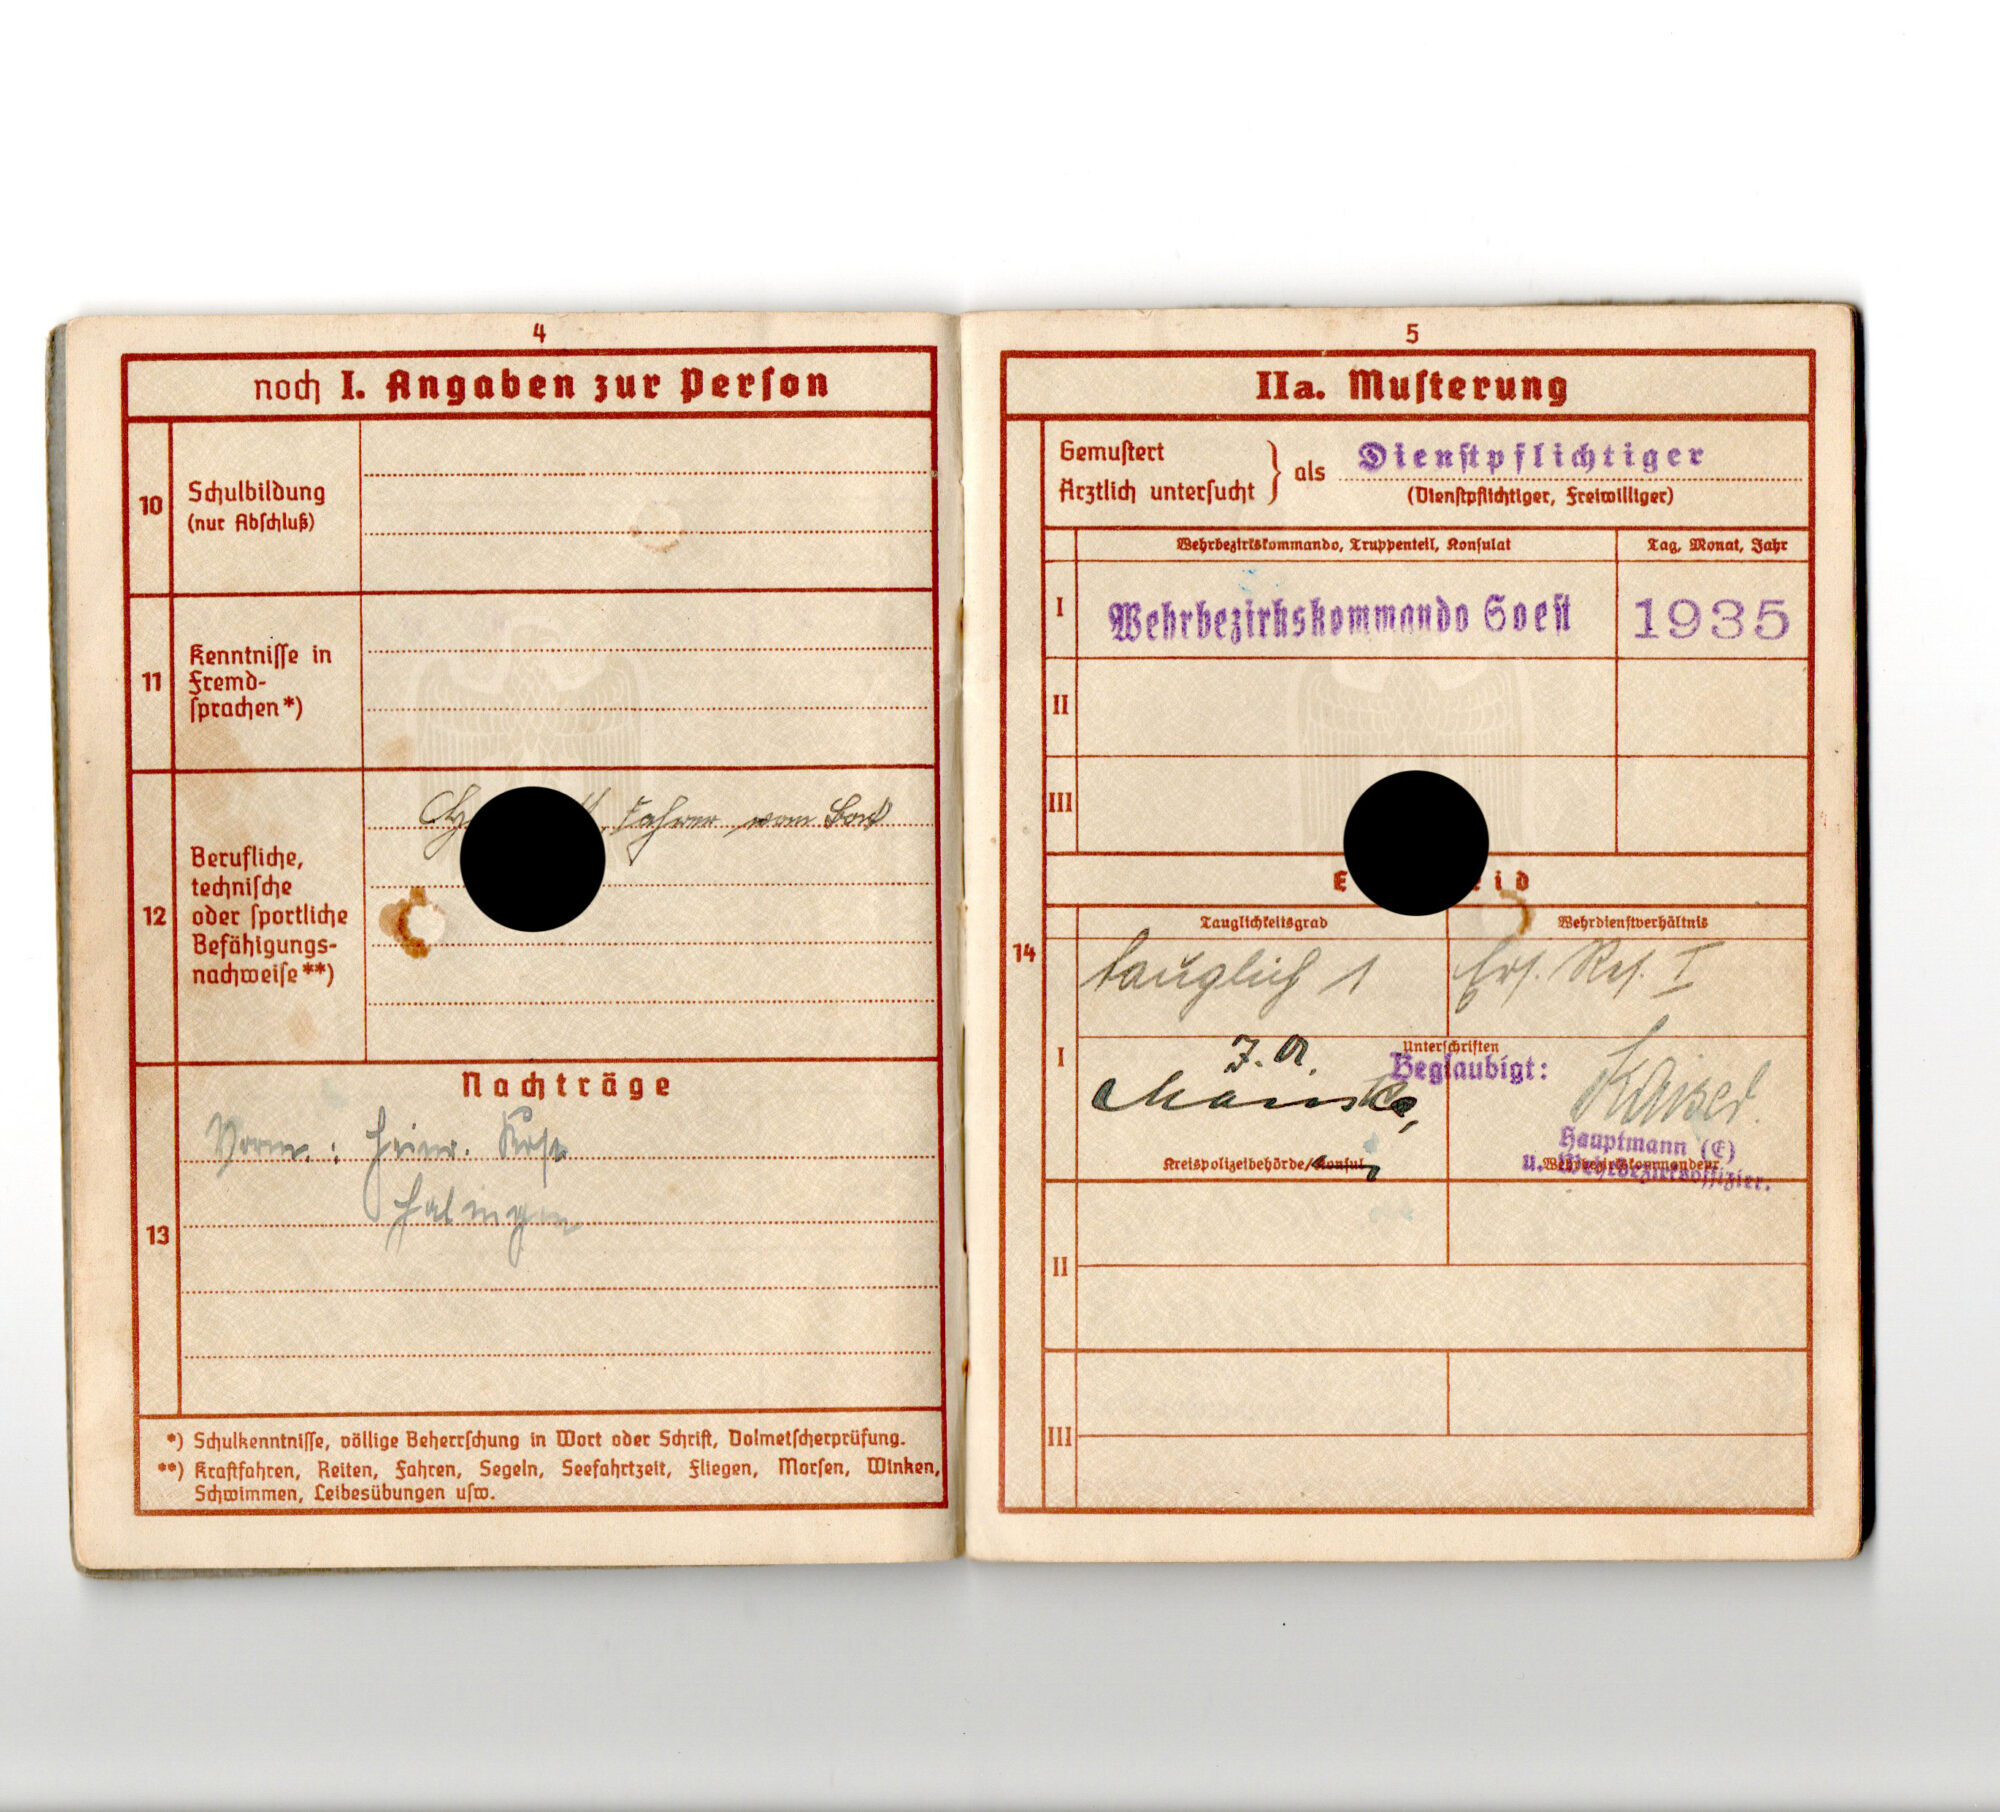 4
noch I. Angaben zur Person
10
Schulbildung
(nur Abschluß)
11
Kenntnisse in
Fremd-
sprachen*)
12
Berufliche,
technische
oder sportliche
Befähigungs-
nachweise**)
Fahrer vom Bock
Nachträge
13
Vorm.: Heinr.
Halingen
*) Schulkenntnisse, völlige Beherrschung in Wort oder Schrift, Dolmetscherprüfung.
**) Kraftfahren, Reiten, Fahren, Segeln, Seefahrtzeit, Fliegen, Morsen, Winken,
Schwimmen, Leibesübungen usw.
5
IIa. Musterung
Gemustert
Ärztlich untersucht } als Dienstpflichtiger
(Dienstpflichtiger, Freiwilliger)
Wehrbezirkskommando, Truppenteil, Konsulat
Tag, Monat, Jahr
I
Wehrbezirkskommando Soest
1935
II
III
E eid
14
Tauglichkeitsgrad
Wehrdienstverhältnis
tauglich 1
Ers. Res. I
I
Unterschriften
J. A.
Beglaubigt:
Kaiser
Hauptmann (E)
u. Wehrbezirksoffizier.
Kreispolizeibehörde/Konsul
Wehrbezirkskommandeur
II
III